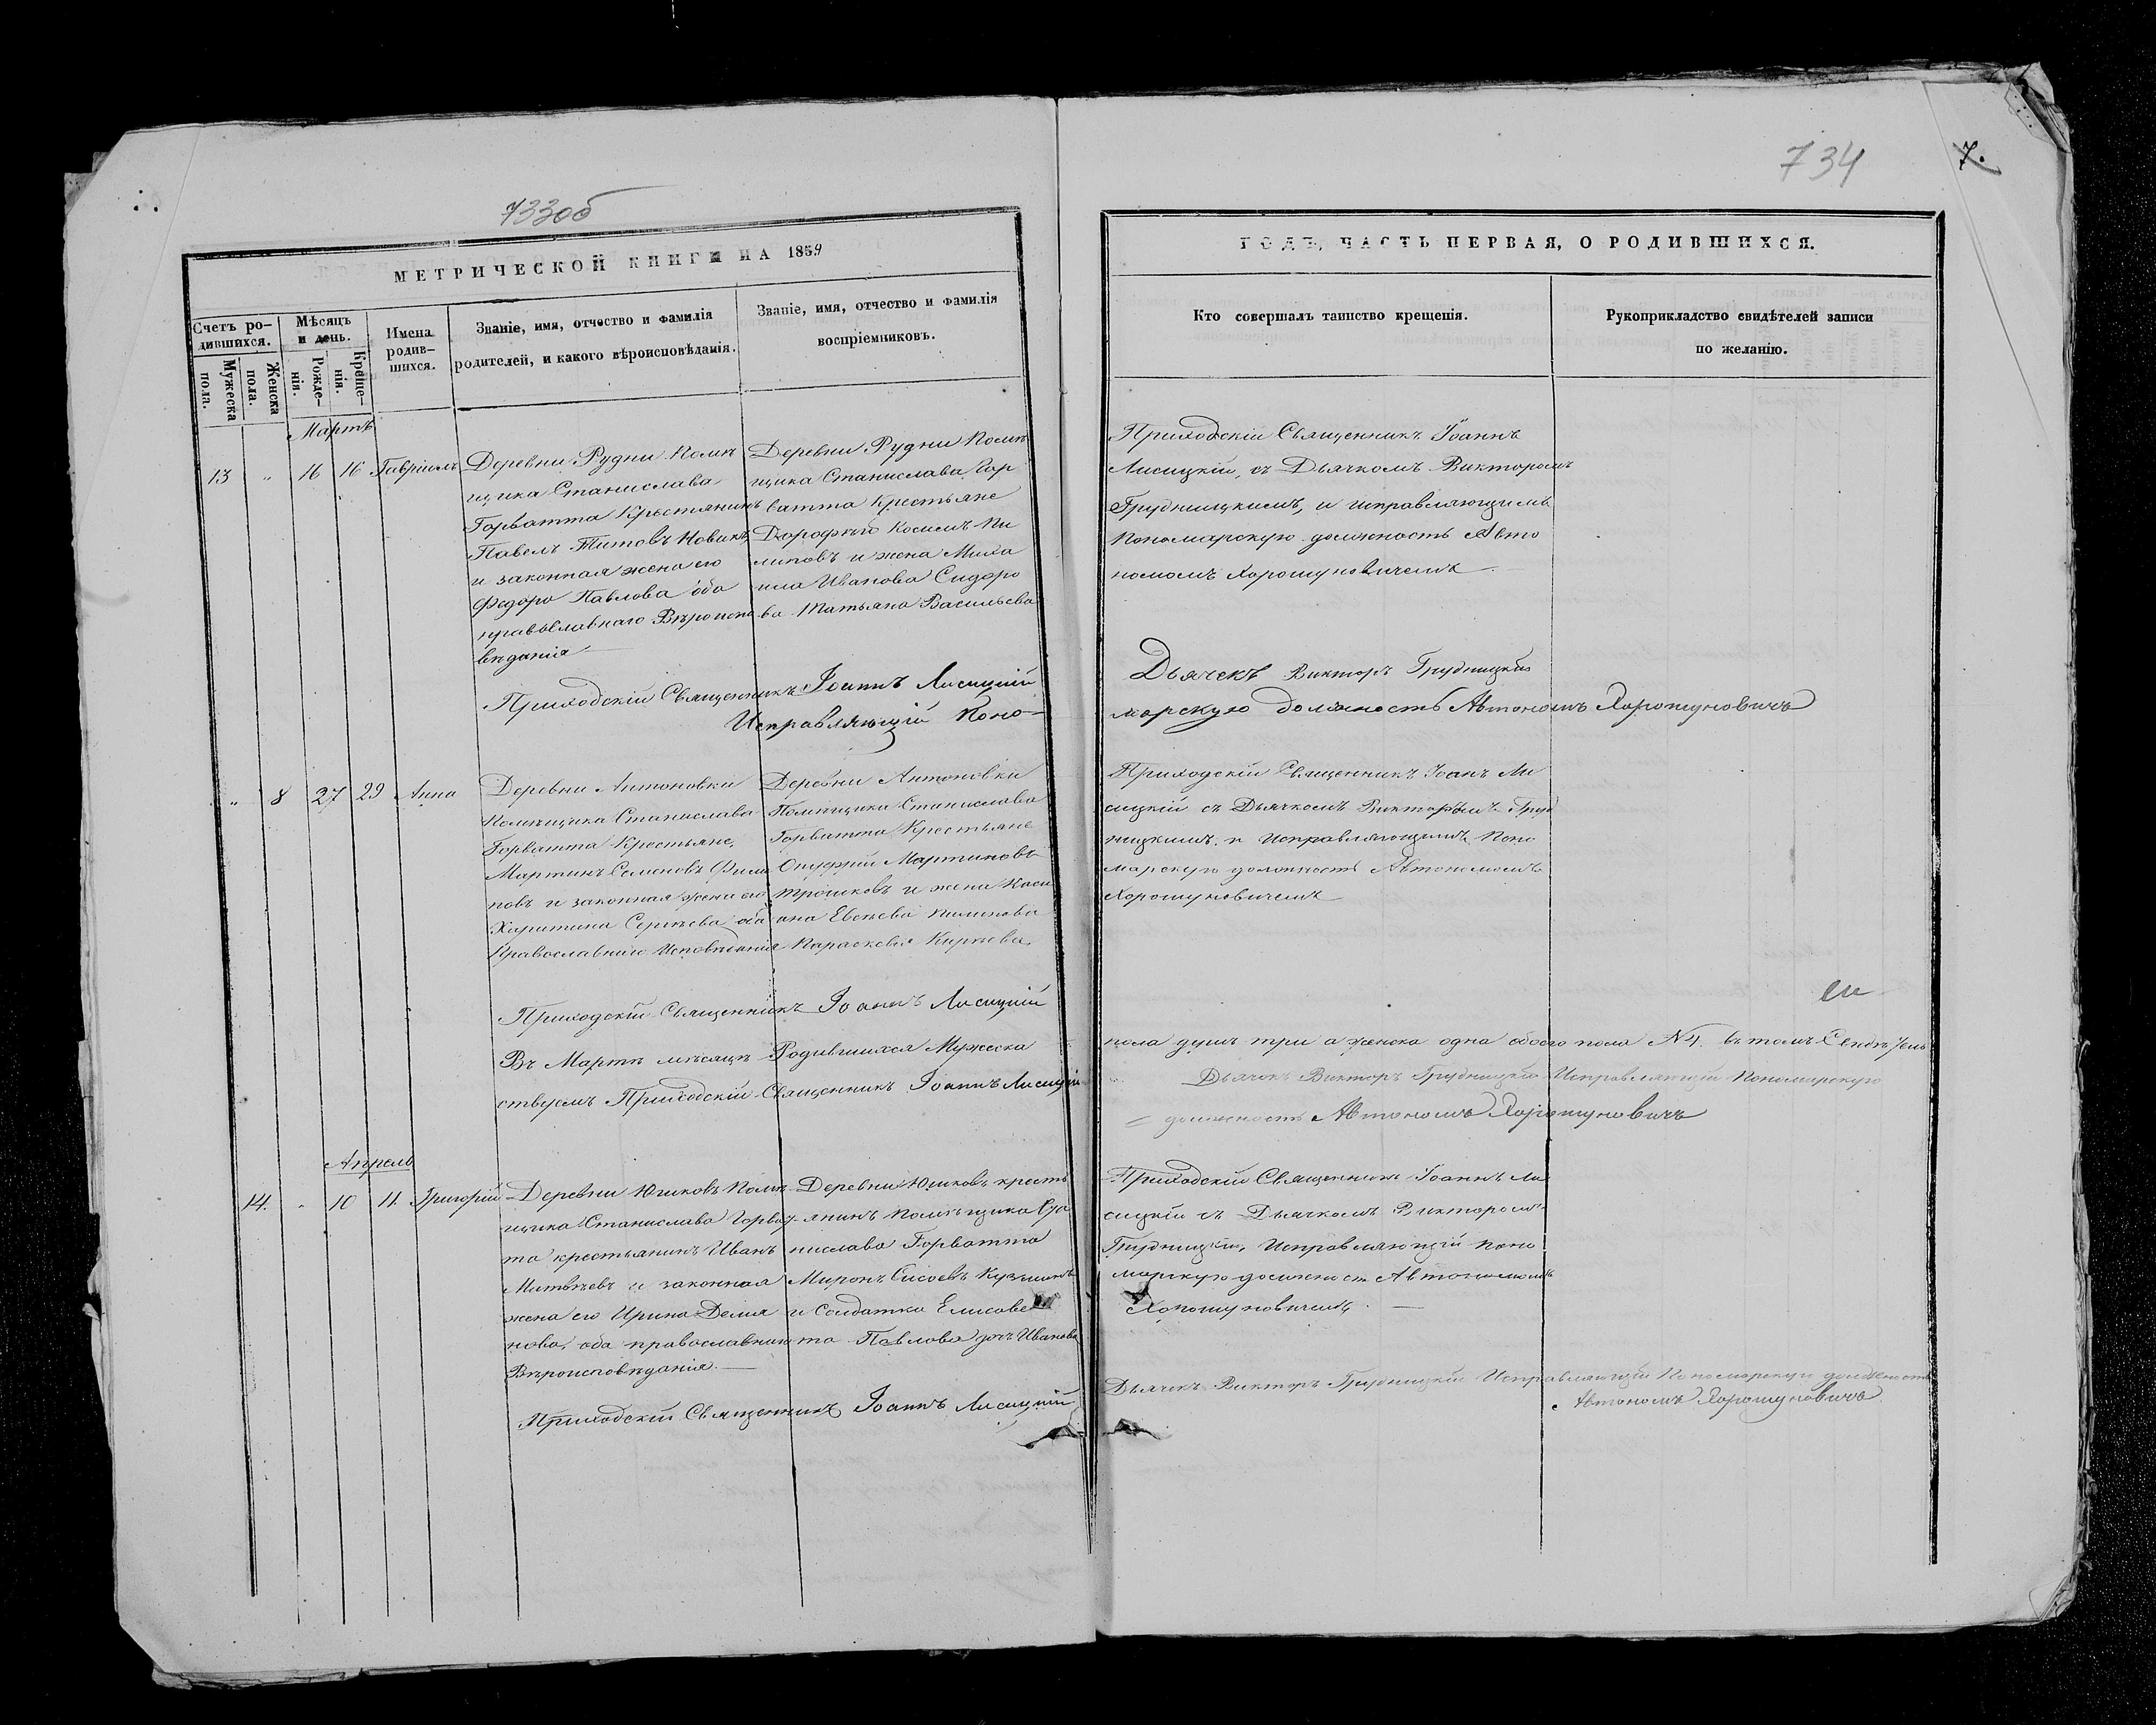 733об
МЕТРИЧЕСКОЙ КНИГИ НА 1859
Счетъ ро-
дившихся.
Мужеска
пола.
Женска
пола.
Мѣсяцъ
и день.
Рожде-
нія.
Креще-
нія.
Имена
родив-
шихся.
Званіе, имя, отчество и фамилія
родителей, и какого вѣроисповѣданія.
Званіе, имя, отчество и фамилія
воспріемниковъ.
Мартъ
13 " 16 16 Гавріилъ
Деревни Рудни Помѣ
щика Станислава
Горватта Крестянинъ
Павелъ Титовъ Новикъ,
и законная жена его
Федора Павлова оба
православнаго Вѣроиспо
вѣданія
Деревни Рудни Помѣ
щика Станислава Гор
ватта Крестьяне
Дорофѣй Косиемъ Пи
липовъ и жена Миха
ила Иванова Сидоро
ва Татьяна Васильева
Приходскій Священникъ Іоаннъ Лисицкій
Исправляющій Поно-
" 8 27 29 Анна
Деревни Антоновки
Помѣщика Станислава
Горватта Крестьяне,
Мартинъ Семеновъ Фили
повъ и законная жена его
Харитина Сергѣева оба
Православнаго Исповѣданія
Деревни Антоновки
Помѣщика Станислава
Горватта Крестьяне
Онуфрій Мартиновъ
Трошковъ и жена Каси
ана Евсѣева Пилипова
Параскевія Кирѣева
Приходскій Священникъ Іоаннъ Лисицкій
Въ Мартѣ мѣсяцѣ Родившихся Мужеска
ствуемъ Приходскій Священникъ Іоаннъ Лисицкій
Апрель
14. " 10 11. Григорій
Деревни Юшковъ Помѣ
щика Станислава Горват
та крестьянинъ Иванъ
Матвѣевъ и законная
жена его Ирина Демья
нова, оба православнаго
Вѣроисповѣданія.
Деревни Юшковъ кресть
янинъ помѣщика Ста
нислава Горватта
Миронъ Сисоевъ Кузминъ
и Солдатка Елисаве
та Павлова дочь Иванова
Приходскій Священникъ Іоаннъ Лисицкій
734
7.
ГОДЪ, ЧАСТЬ ПЕРВАЯ, О РОДИВШИХСЯ.
Кто совершалъ таинство крещенія.
Рукоприкладство свидѣтелей записи
по желанію.
Приходскій Священникъ Іоаннъ
Лисицкій, съ Дьячкомъ Викторомъ
Грудницкимъ, и исправляющимъ
Пономарскую должность Авто
номомъ Хорошуновичемъ
Дьячекъ Викторъ Грудницкій
марскую должность Автономъ Хорошуновичъ
Приходскій Священникъ Іоанъ Ли
сицкій съ Дьячкомъ Викторомъ Груд
ницкимъ и Исправляющимъ Поно
марскую должность Автономомъ
Хорошуновичемъ
пола душъ три а женска одна обоего пола №4. въ томъ
Дьячекъ Викторъ Грудницкій Исправляющій Пономарскую
должность Автономъ Хорошуновичъ
Приходскій Священникъ Іоаннъ Ли
сицкій съ Дьячкомъ Викторомъ
Грудницкимъ, Исправляющій Поно
марскую должность Автономомъ
Хорошуновичемъ.
Дьячекъ Викторъ Грудницкій Исправляющій Пономарскую должность
Автономъ Хорошуновичъ.